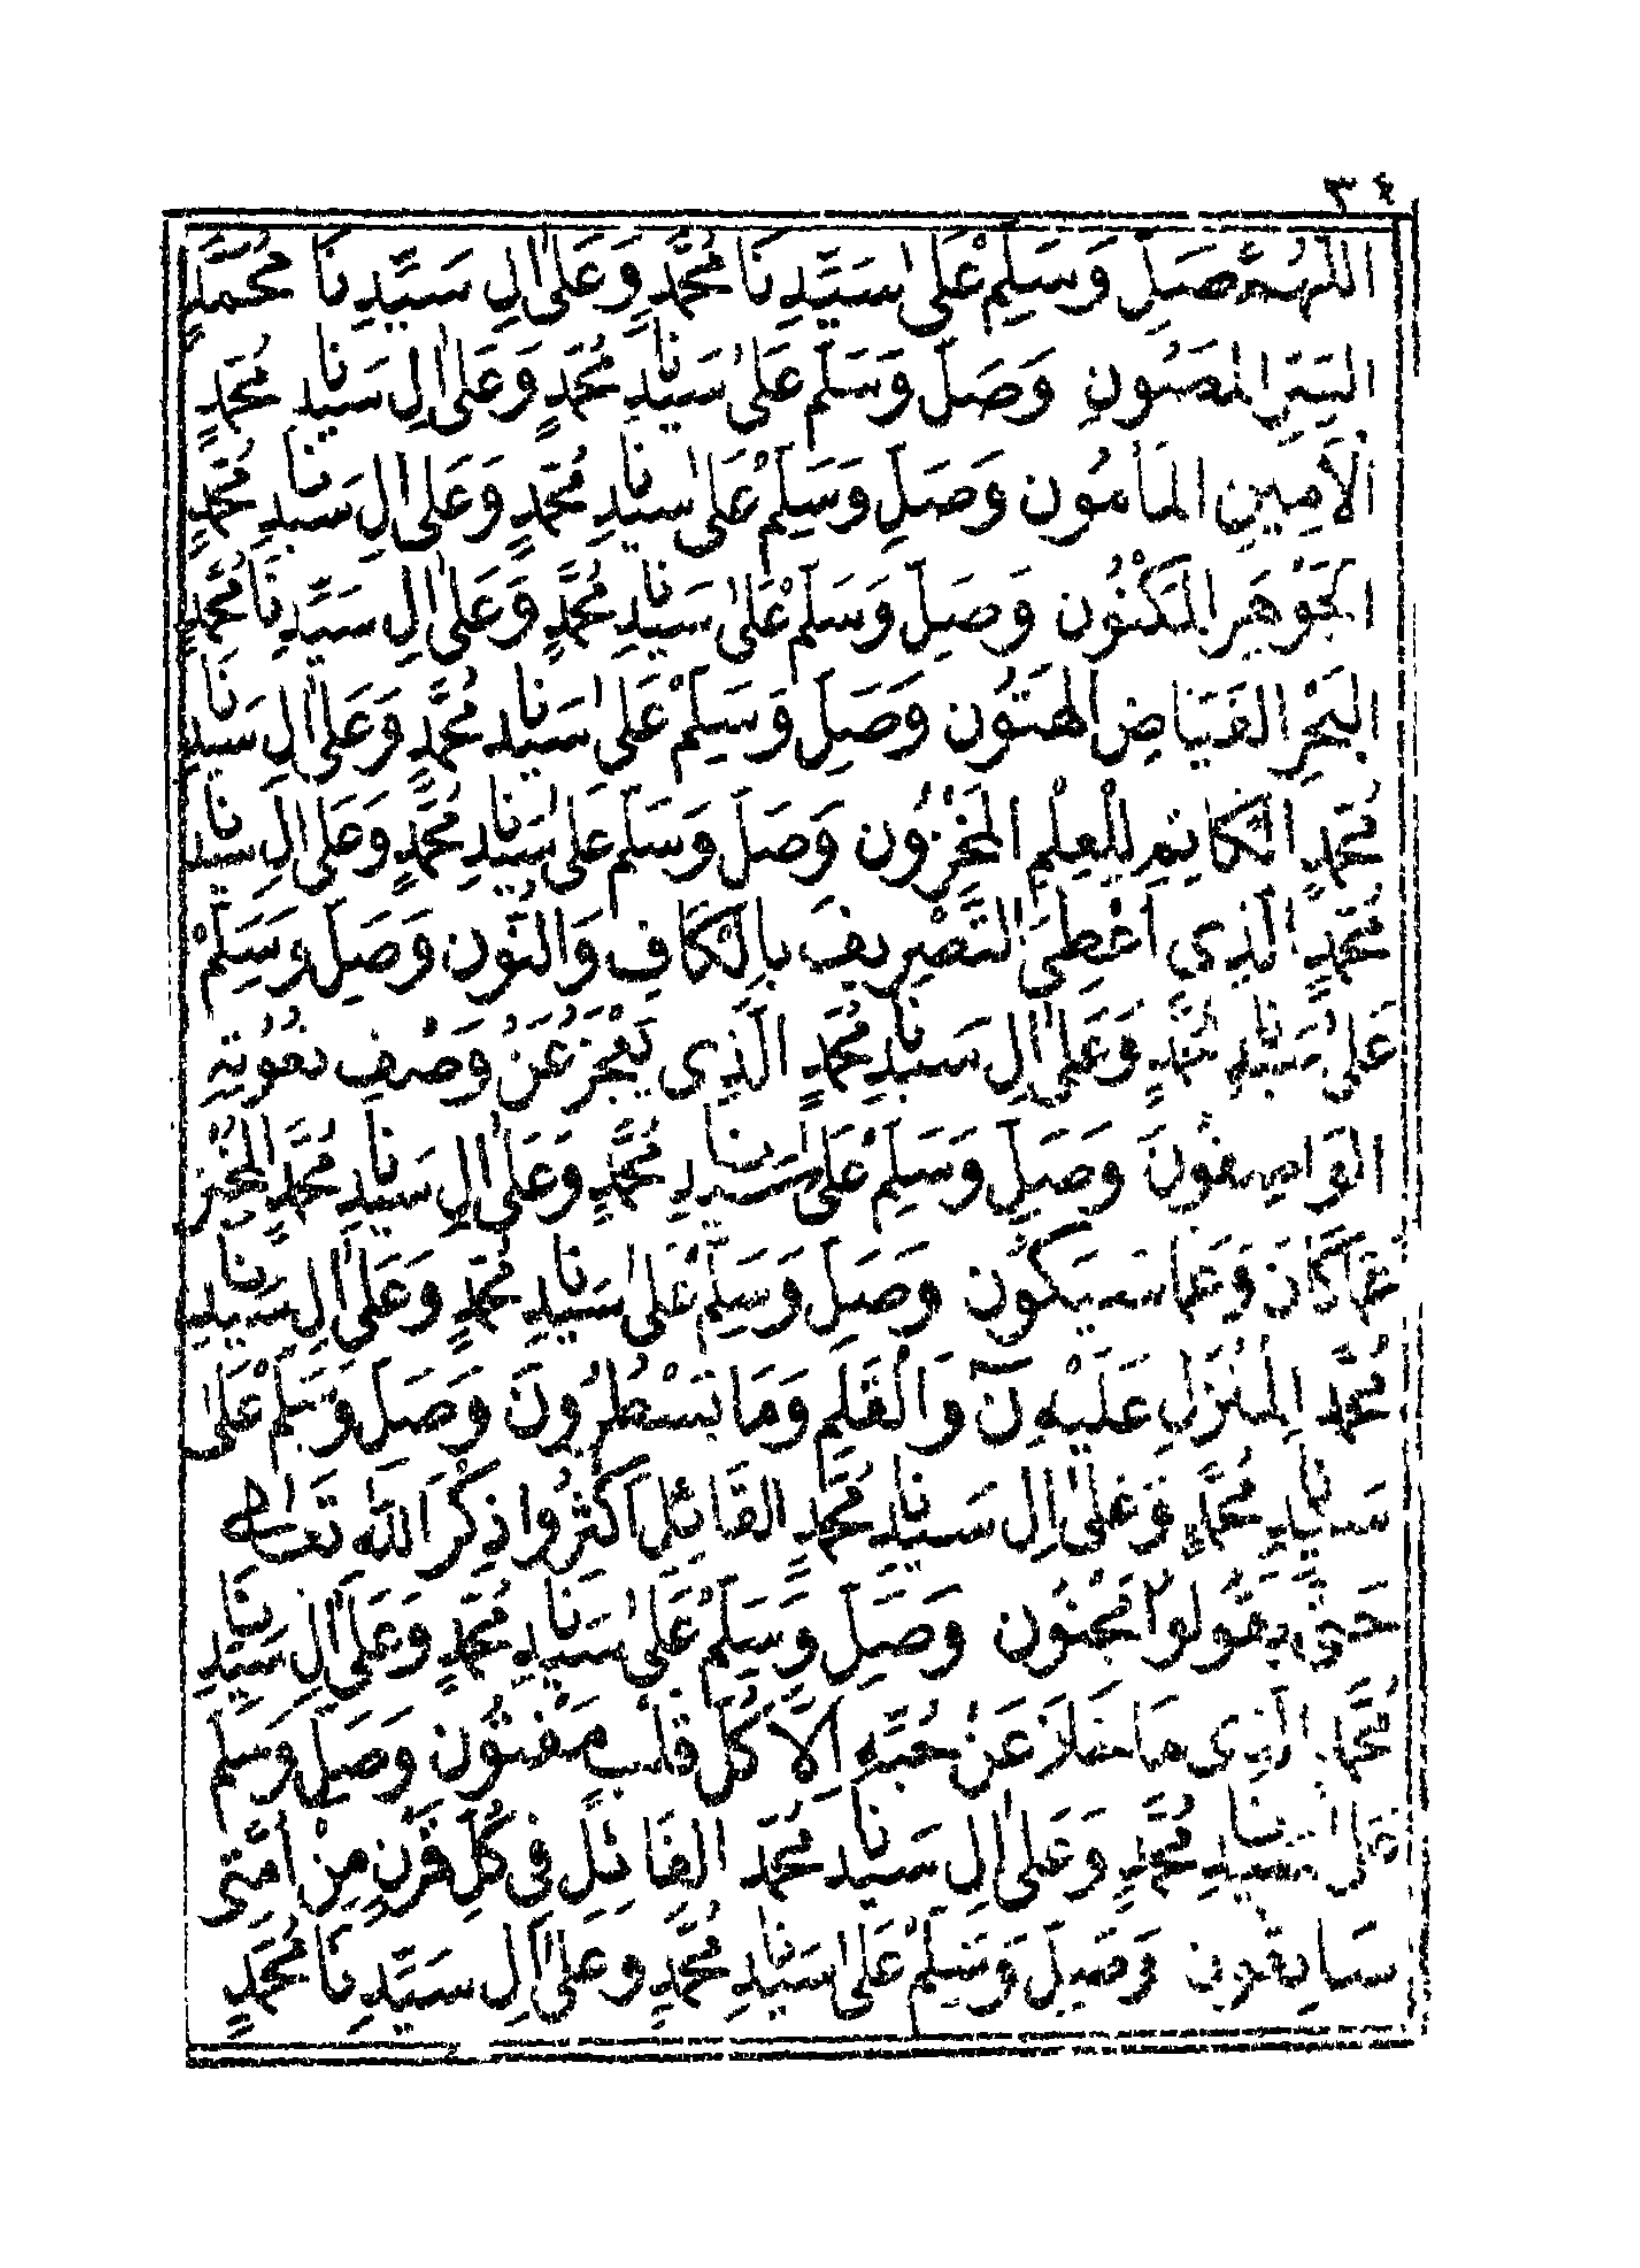 ٣٤
اللّٰهُمَّ صَلِّ وَسَلِّمْ عَلىٰ سَيِّدِنَا مُحَمَّدٍ وَعَلىٰ اٰلِ سَيِّدِنَا مُحَمَّدٍ
السِّرِّ المَصُونِ وَصَلِّ وَسَلِّمْ عَلىٰ سَيِّدِنَا مُحَمَّدٍ وَعَلىٰ اٰلِ سَيِّدِنَا مُحَمَّدٍ
الْاَمِينِ المَأمُون وَصَلِّ وَسَلِّمْ عَلىٰ سَيِّدِنَا مُحَمَّدٍ وَعَلىٰ اٰلِ سَيِّدِنَا مُحَمَّدٍ
الجَوْهَرِ المَكْنُون وَصَلِّ وَسَلِّمْ عَلىٰ سَيِّدِنَا مُحَمَّدٍ وَعَلىٰ اٰلِ سَيِّدِنَا مُحَمَّدٍ
البَحْرِ الفَيَّاضِ الهَتُون وَصَلِّ وَسَلِّمْ عَلىٰ سَيِّدِنَا مُحَمَّدٍ وَعَلىٰ اٰلِ سَيِّدِنَا
مُحَمَّدٍ الكَاتِمِ لِلْعِلْمِ المَخْزُون وَصَلِّ وَسَلِّمْ عَلىٰ سَيِّدِنَا مُحَمَّدٍ وَعَلىٰ اٰلِ سَيِّدِنَا
مُحَمَّدٍ الَّذِى اُعْطِىَ التَّصْرِيفَ بِالكَافِ وَالنُّون وَصَلِّ وَسَلِّمْ
عَلىٰ سَيِّدِنَا مُحَمَّدٍ وَعَلىٰ اٰلِ سَيِّدِنَا مُحَمَّدٍ الَّذِى يَعْجَزُ عَنْ وَصْفِ نُعُوتِهِ
الوَاصِفُونَ وَصَلِّ وَسَلِّمْ عَلىٰ سَيِّدِنَا مُحَمَّدٍ وَعَلىٰ اٰلِ سَيِّدِنَا مُحَمَّدٍ المُخْبِرِ
عَمَّا كَانَ وَعَمَّا سَيَكُون وَصَلِّ وَسَلِّمْ عَلىٰ سَيِّدِنَا مُحَمَّدٍ وَعَلىٰ اٰلِ سَيِّدِنَا
مُحَمَّدٍ المُنْزَلِ عَلَيْهِ نٓ وَالْقَلَمِ وَمَا يَسْطُرُونَ وَصَلِّ وَسَلِّمْ عَلىٰ
سَيِّدِنَا مُحَمَّدٍ وَعَلىٰ اٰلِ سَيِّدِنَا مُحَمَّدٍ القَائِلِ اَكْثِرُوا ذِكْرَ اللّٰهِ تَعَالىٰ
حَتّٰى يَقُولُوا مَجْنُون وَصَلِّ وَسَلِّمْ عَلىٰ سَيِّدِنَا مُحَمَّدٍ وَعَلىٰ اٰلِ سَيِّدِنَا
مُحَمَّدٍ الَّذِى مَا خَلَا عَنْ حُبِّهِ اِلَّا كُلُّ قَلْبٍ مَفْتُون وَصَلِّ وَسَلِّمْ
عَلىٰ سَيِّدِنَا مُحَمَّدٍ وَعَلىٰ اٰلِ سَيِّدِنَا مُحَمَّدٍ القَائِلِ فِى كُلِّ قَرْنٍ مِنْ اُمَّتِى
سَابِقُون وَصَلِّ وَسَلِّمْ عَلىٰ سَيِّدِنَا مُحَمَّدٍ وَعَلىٰ اٰلِ سَيِّدِنَا مُحَمَّدٍ